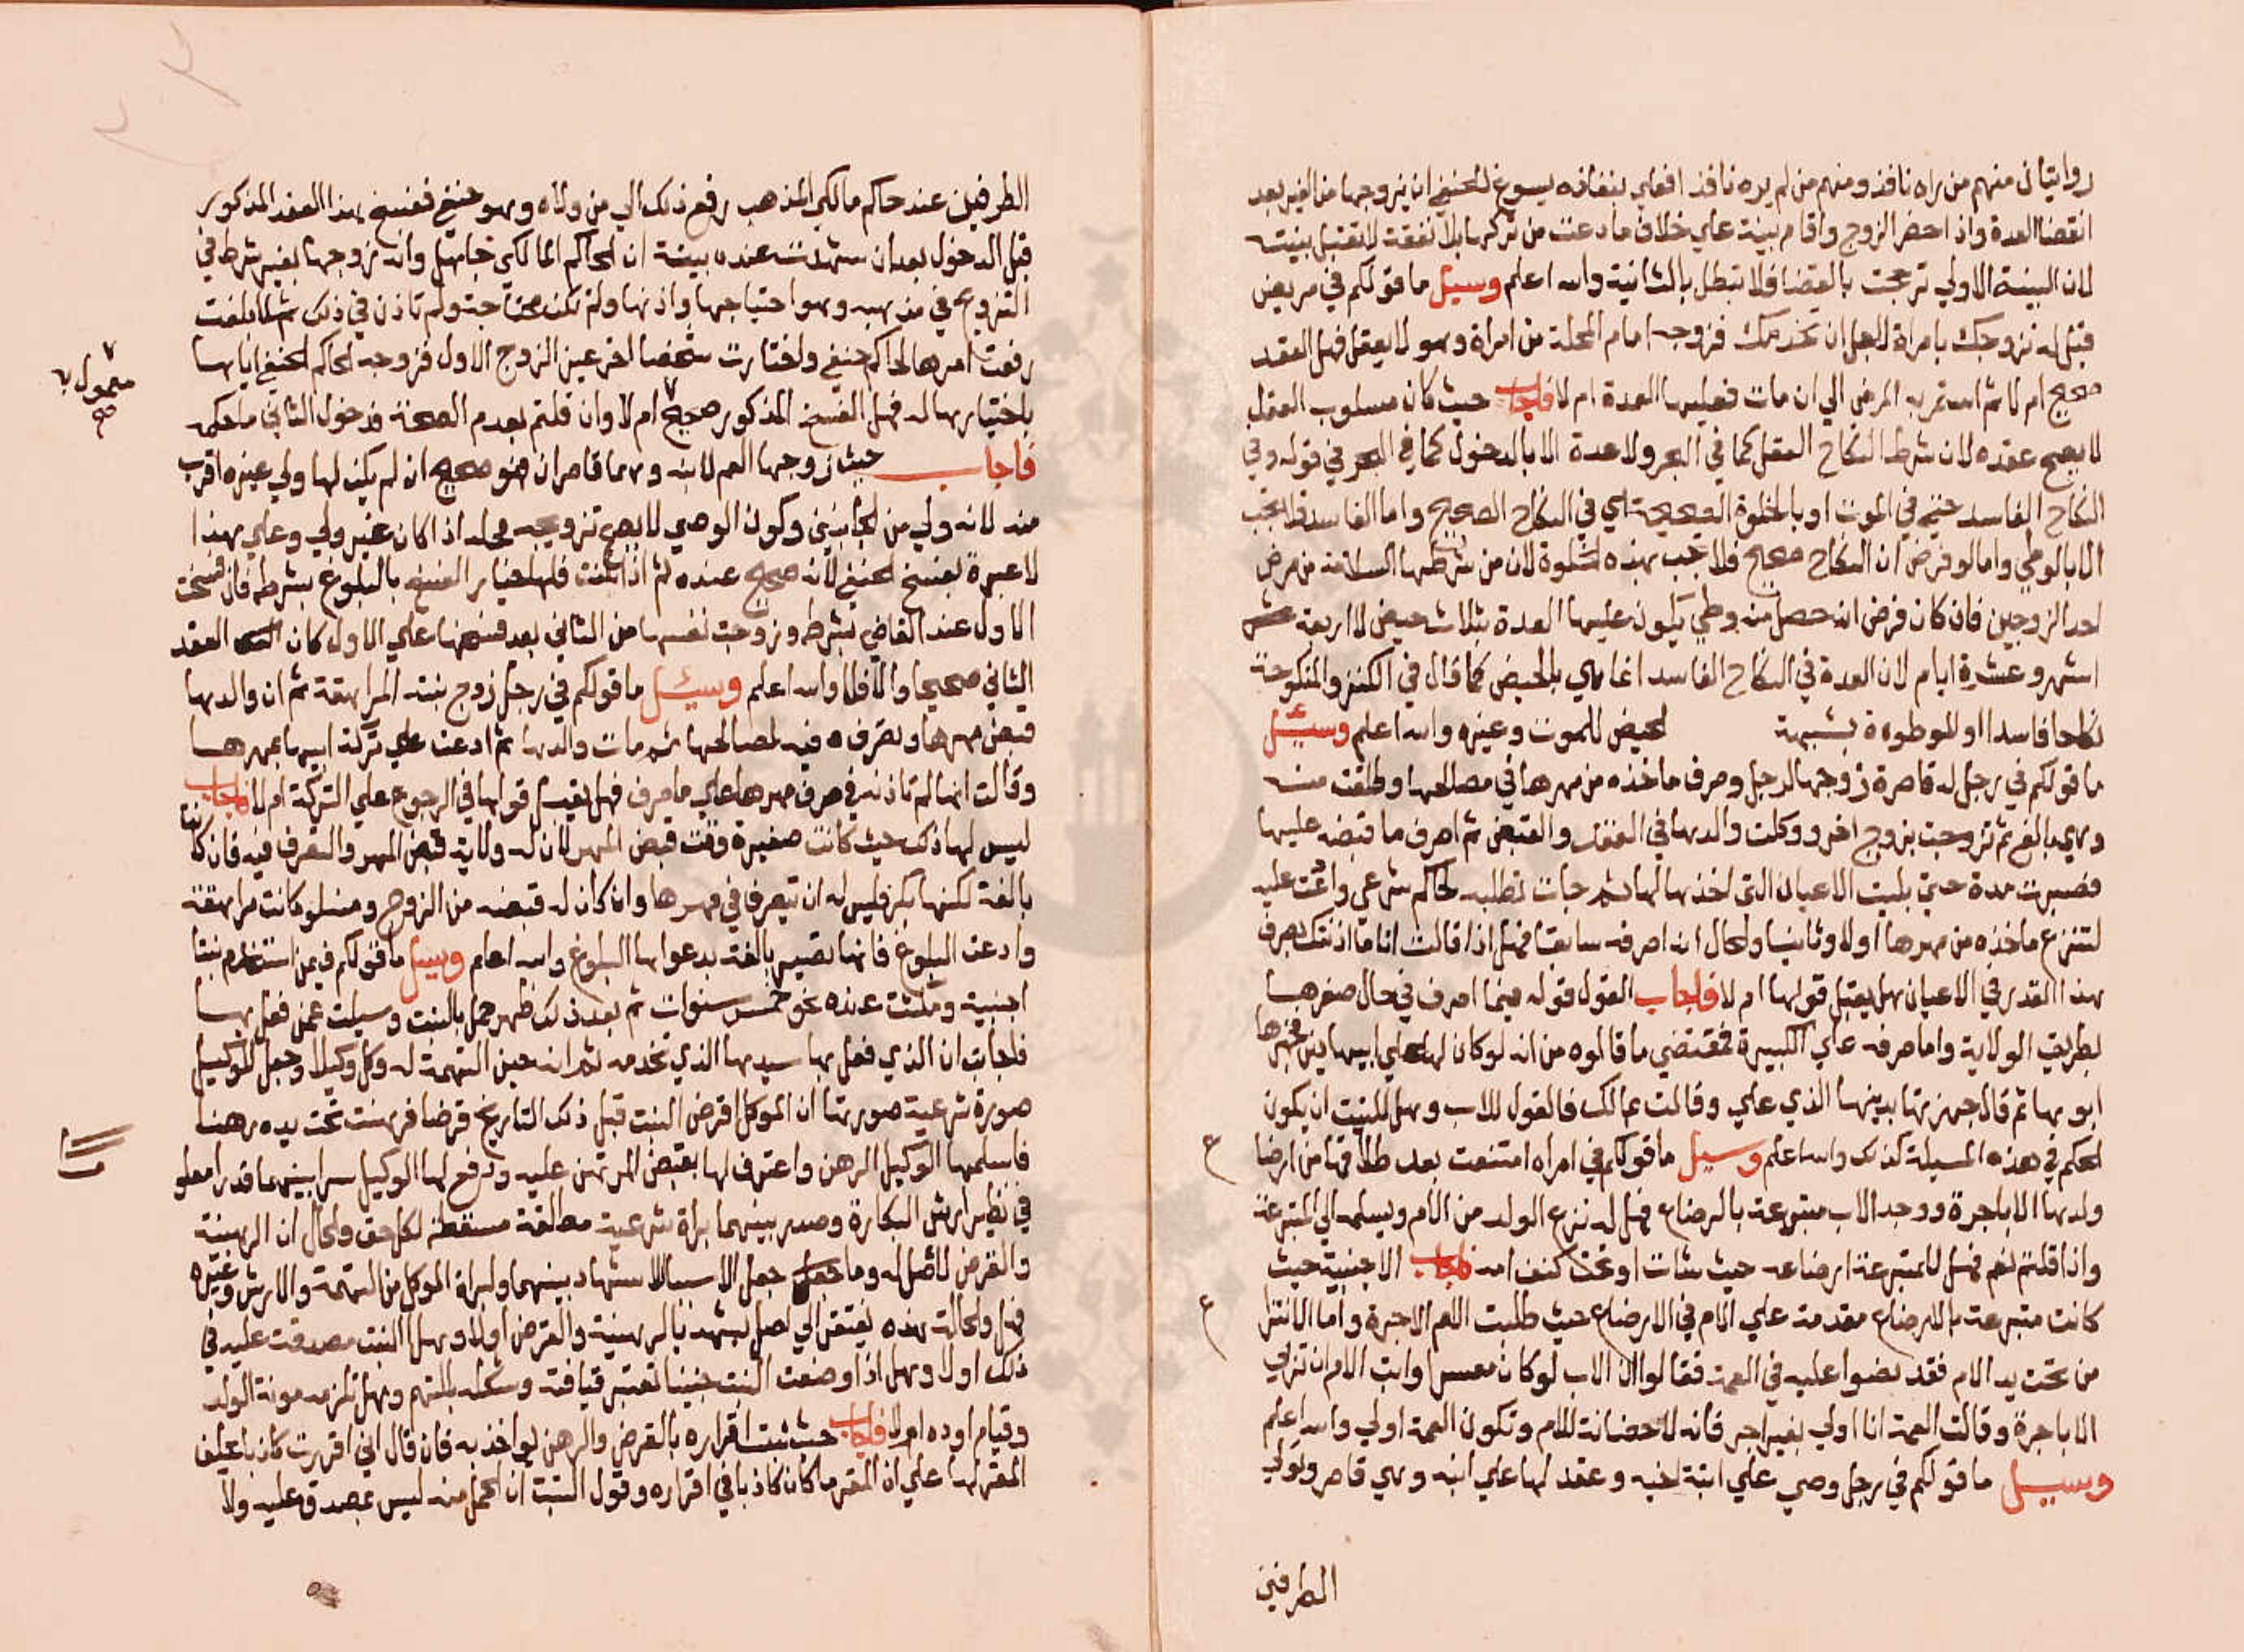 روايتان منهم من راه نافذ ومنهم من لم يره نافذ افعلي بنفاذه يسوغ للحنفي ان يزوجها من الغير بعد
انقضا العدة واذا حضر الزوج واقام بينة علي خلاف ما دعت من تركها بلا نفقة لا تقبل بينته
لان البينة الاولي ترجحت بالقضا فلا تبطل بالثانية والله اعلم وسيل ما قولكم في مريض
قيل له نزوجك بامراة لاجل ان تخدمك فزوجه امام المحلة من امراة وهو لا يعقل فهل العقد
صحيح ام لا ثم استمر به المرض الي ان مات فعليها العدة ام لا فاجاب حيث كان مسلوب العقل
لا يصح عقده لان شرط النكاح العقل كما في البحر ولا عدة الا بالدخول كما في البحر في قوله وفي
النكاح الفاسد حتي في الموت او بالخلوة الصحيحة اي في النكاح الصحيح واما الفاسد فلا تجب
الا بالوطي واما لو فرض ان النكاح صحيح فلا تجب بهذه الخلوة لان من شرطها السلامة من مرض
احد الزوجين فان كان فرض انه حصل منه وطي يكون عليها العدة بثلاث حيض لا اربعة عشر
اشهر وعشرة ايام لان العدة في النكاح الفاسد انما هي بالحيض كما قال في الكنز والمنكوحة
نكاحا فاسدا او الموطوءة بشبهة الحيض للموت وغيره والله اعلم وسئيل
ما قولكم في رجل له قاصرة زوجها لرجل وصرف ما اخذه من مهرها في مصالحها وطلقت منه
وهي بالغ ثم تزوجت بزوج اخر ووكلت والدها في العقد والقبض ثم اصرف ما قبضه عليها
فصبرت مدة حتي بليت الاعيان التي اخذها لها ثم جات تطلبه لحاكم شرعي وادعت عليه
لتنزع ما اخذه من مهرها اولا وثانيا والحال انه اصرفه سابقا فهل اذا قالت انا ما اذنتك بصرف
هذا القدر في الاعيان هل يقبل قولها ام لا فاجاب القول قوله فيما اصرف في حال صغرها
بطريق الولاية واما صرفه علي الكبيرة فمقتضي ما قالوه من انه لو كان لها علي ابيها دين فجهزها
ابوها ثم قال جهزتها بدينها الذي علي وقالت بمالك فالقول للاب وهل للبنت ان يكون
الحكم في هذه المسيلة كذلك والله اعلم وسيل ما قولكم في امراه امتنعت بعد طلاقها من ارضا
ولدها الا باجرة ووجد الاب متبرعة بالرضاع فهل له نزع الولد من الام ويسلمه الي المتبرعة
واذا قلتم نعم فهل للمتبرعة ارضاعه حيث شات او تحت كنف امه فاجاب الاجنبية حيث
كانت متبرعة بالارضاع مقدمة علي الام في الارضاع حيث طلبت الام الاجرة واما الانتزا
من تحت يد الام فقد نصوا عليه في العمة فقالوا ان الاب لو كان معسرا وابت الام ان تربي
الا باجرة وقالت العمة انا اولي بغير اجر فانه لا حضانة للام وتكون العمة اولي والله اعلم
وسيل ما قولكم في رجل وصي علي ابنة اخيه وعقد لها علي ابنه وهي قاصر وتولي
الطرفين
الطرفين عند حاكم مالكي المذهب رفع ذلك الي من ولاه وهو حنفي ففسخ هذا العقد المذكور
قبل الدخول بعد ان شهدت عنده بينة ان الحاكم المالكي جاهل وانه زوجها بغير شرط في
التزويج في مذهبه وهو احتياجها واذنها ولم تكن محتاجة ولم تاذن في ذلك ثم لما بلغت
رفعت امرها لحاكم حنفي واختارت شخصا اخر غير الزوج الاول فزوجه الحاكم الحنفي اياها
باختيارها له فهل الفسخ المذكور صحيح ام لا وان قلتم بعدم الصحة ودخول الثاني ما حكمه
معمول به
صح
فاجاب حيث زوجها العم لابنه وهما قاصران فهو صحيح ان لم يكن لها ولي غيره اقرب
منه لانه ولي من الجانبين وكون الوصي لا يصح تزويجه محله اذا كان غير ولي وعلي هذا
لا عبرة بفسخ الحنفي لانه صحيح عنده ثم اذا بلغت فلها خيار الفسخ بالبلوغ بشرطه فان فسخت
الاول عند القاضي بشرطه وزوجت نفسها من الثاني بعد فسخها علي الاول كان العقد
الثاني صحيحا والا فلا والله اعلم وسيئل ما قولكم في رجل زوج بنته المراهقة ثم ان والدها
قبض مهرها وتصرف فيه لمصالحها ثم مات والدها ثم ادعت علي تركة ابيها بمهرها
وقالت انها لم تاذنه في صرف مهرها علي ما صرف فهل يقبل قولها في الرجوع علي التركة ام لا فاجاب
ليس لها ذلك حيث كانت صغيرة وقت قبض المهر لان له ولاية قبض المهر والتصرف فيه فان كانت
بالغة لكنها بكر فليس له ان يتصرف في مهرها وان كان له قبضه من الزوج ومثله لو كانت مراهقة
وادعت البلوغ فانها تصير بالغة بدعواها البلوغ والله اعلم وسيل ما قولكم فيمن استخدم بنتا
اجنبية ومكثت عنده نحو خمس سنوات ثم بعد ذلك ظهر حمل بالبنت وسيلت عمن فعل بها
فاجابت ان الذي فعل بها سيدها الذي تخدمه ثم انه حين التهمة له وكل وكيلا وجعل للوكيل
صورة شرعية صورتها ان الموكل اقرض البنت قبل ذلك التاريخ قرضا فرهنت تحت يده رهنا
فاسلمها الوكيل الرهن واعترف لها بقبض المرتهن عليه ودفع لها الوكيل سرا بينهما قدرا معلو
في نظير ارش البكارة وصدر بينهما براة شرعية مطلقة مسقطة لكل حق والحال ان الرهنية
والقرض لا اصل له وما جعل جعل الا سببا للاشهاد بينهما ولبراة الموكل من التهمة والارش وغيره
فهل والحالة هذه يفتقر الي اصل يشهد بالرهنية والقرض اولا وهل البنت مصدقت عليه في
ذلك اولا وهل اذا وضعت البنت جنينا تعتبر قيافته وشكله بالمتهم وهل تلزمه مونة الولد
وقيام اوده ام لا فاجاب حيث ثبت اقراره بالقرض والرهن يواخذ به فان قال اني اقررت كاذبا يحلف
المقر لها علي ان المقر ما كان كاذبا في اقراره وقول البنت ان الحمل منه ليس بمصدق عليه ولا